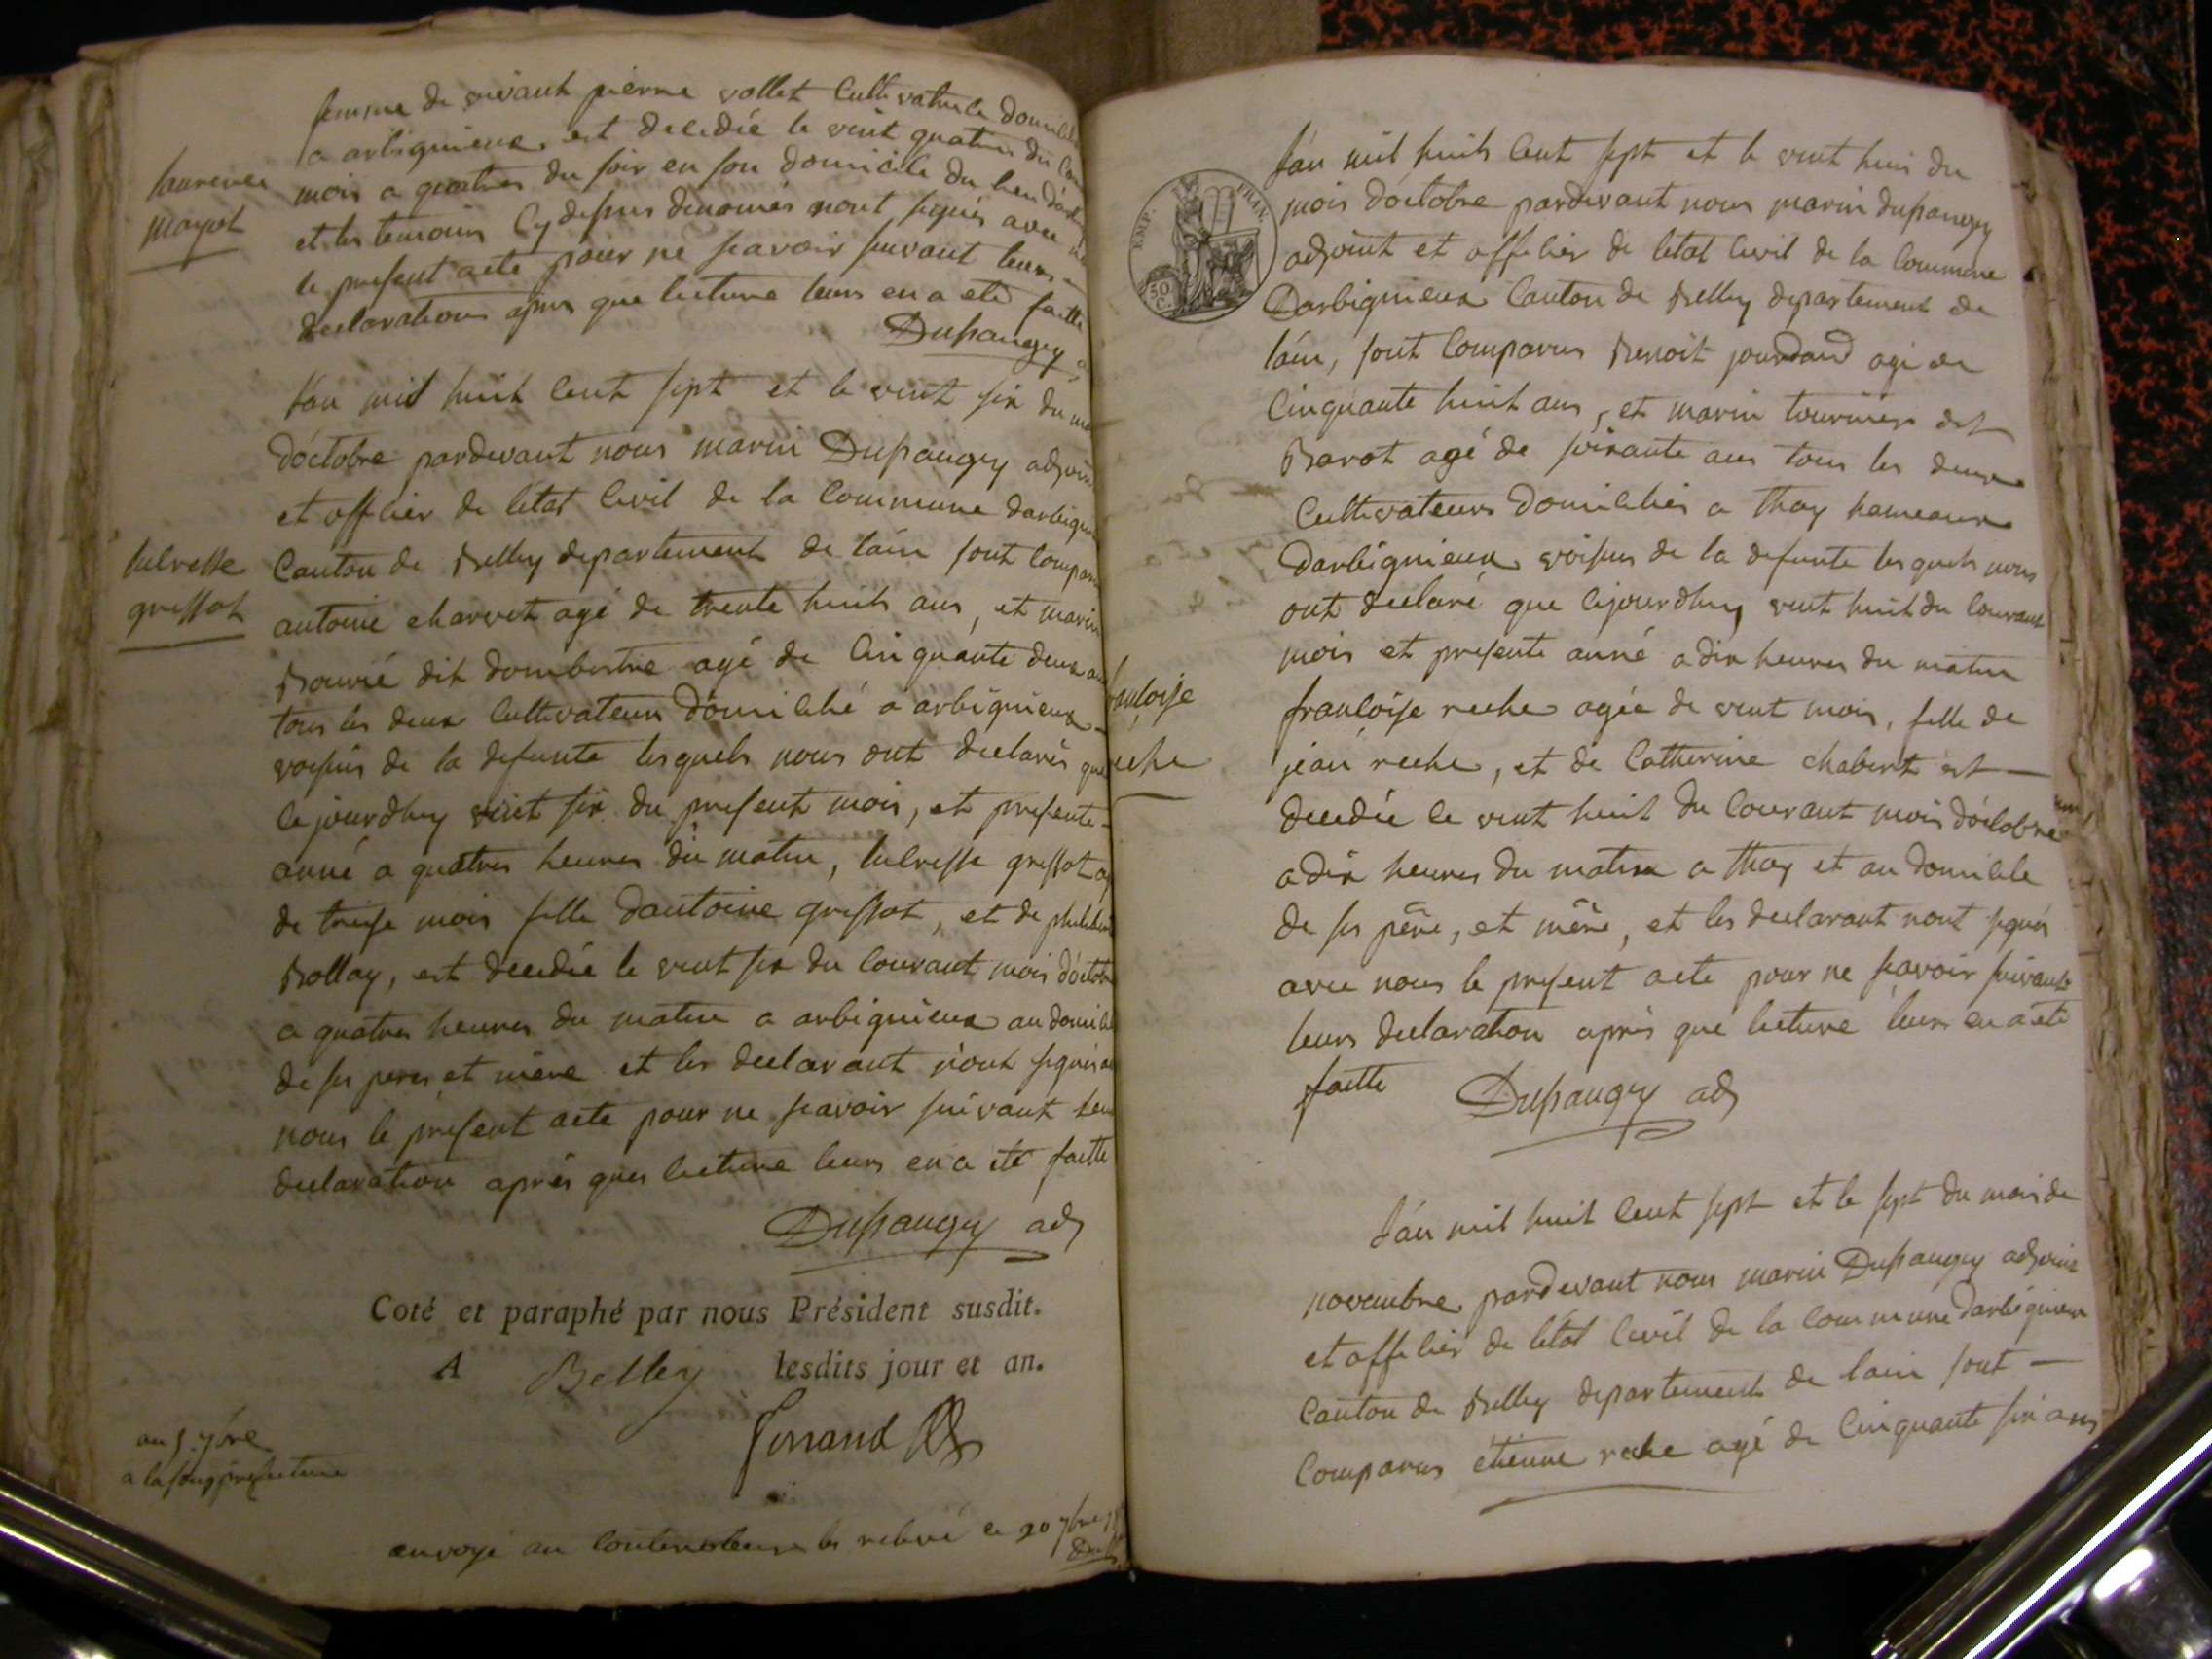 femme de vivant pierre vollet Cultivatrice domicili
a arbignieux, est decedée le vint quatres du Cou
laurence
mayot
mois a quatres du soir en son domicile du lieu d'arb
et les temoins Cy dessus denomés n'ont signés avec
le present acte pour ne scavoir suivant leurs
declarations apres que lecture leurs en a eté faitte
Dupaugey
l'an mil huit Cent sept et le vint six du mo
d'octobre pardevant nous marin Dupaugey adjoin
et officier de l'état Civil de la Commune darbigni
lucresse
gressot
Canton de Belley departement de lain sont Compar
antoine charvet agé de trente huit ans, et marin
Bouvié dit dombestre agé de Cinquante deux an
tous les deux Cultivateurs domicilié a arbignieux
voisins de la defunte lesquels nous ont declarés que
ce jourdhuy vint six du present mois, et presente
anné a quatres heures du matin, lucresse gressot ag
de treise mois fille dantoine gressot, et de philibert
Bollay, est decedée le vint six du Courant mois d'octob
a quatres heures du matin a arbignieux au domicil
de ses peres et mère et les declarant n'ont signés a
nous le present acte pour ne scavoir suivant leu
declaration après ques lecture leurs en a été faitte
Dupaugey adj
Coté et paraphé par nous Président susdit.
A Belley lesdits jour et an.
Ferrand
au 5 9bre
a la sous prefecture
envoyé au Controleurs les relevé le 20 9bre
EMP. FRAN.
50 C.
l'an mil huit Cent sept et le vint huit du
mois d'octobre pardevant nous marin dupaugey
adjoint et officier de létat Civil de la Commune
Darbignieux Canton de Belley departement de
l'ain, sont Comparus Benoit jourdand agé de
Cinquante huit ans, et marin tournier dit
Barot agé de soixante ans tous les deuxs
Cultivateurs domiciliés a thoy hameaux
Darbignieux voisins de la defunte lesquels nous
ont declaré que cejourdhuy vint huit du Courant
mois et presente anné a dix heures du matin
françoise
reche
francoise reche agée de vint mois, fille de
jean reche, et de Catherine chabert est
decedée le vint huit du Courant mois d'octobre
a dix heures du matin a thoy et au domicile
de ses père, et mère, et les declarant n'ont signés
avec nous le present acte pour ne scavoir suivants
leurs declaration après que lecture leurs en a eté
faitte Dupaugey adj
l'an mil huit Cent sept et le sept du mois de
novembre pardevant nous marin Dupaugey adjoint
et officier de létat Civil de la Commune darbignieux
Canton de Belley departement de lain sont
Comparus étienne reche agé de Cinquante six ans